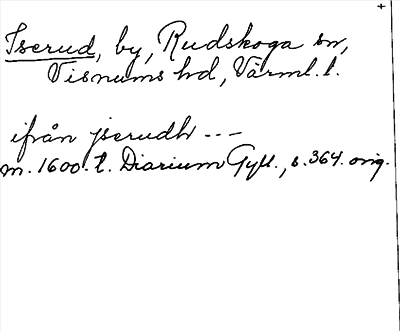 Iserud, by, Rudskoga sn,
Visnums hd, Värml. l.
ifrån jserudh ---
m. 1600-t. Diarium Gyll., s. 364. orig.